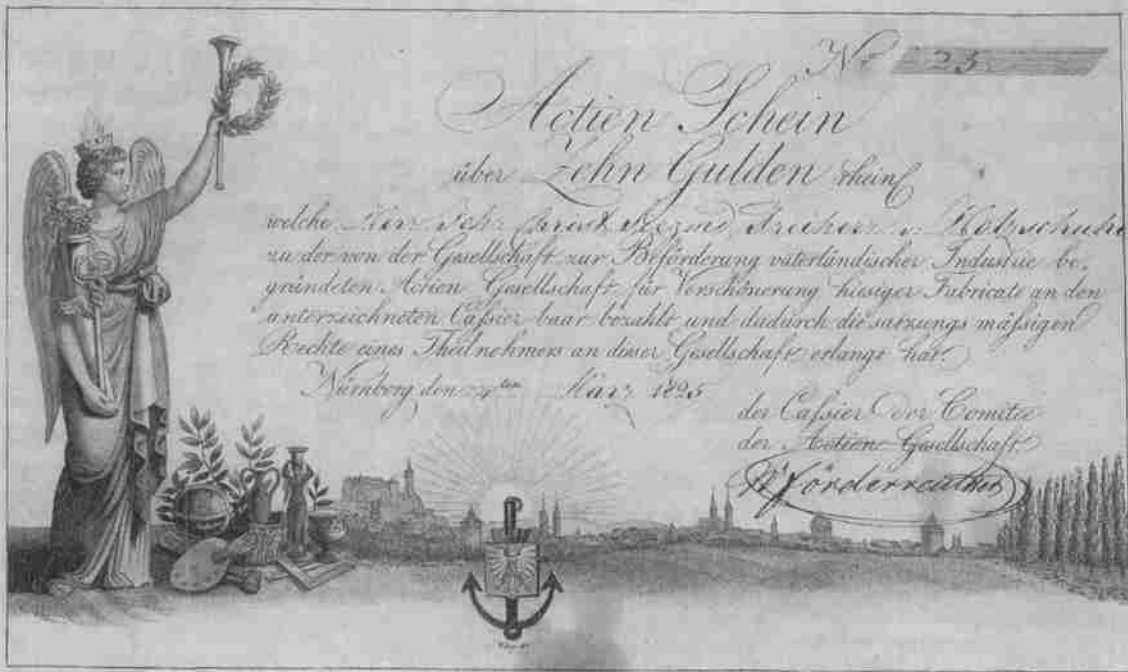 No 23
Actien Schein
über Zehn Gulden rhein
welche Herr Joh. Freiherr v. Holzschuher
zu der von der Gesellschaft zur Beförderung väterländischer Industrie be-
gründeten Actien Gesellschaft für Verschönerung hiesiger Fabricate an den
unterzeichneten Cassier baar bezahlt und dadurch die satzungs mässigen
Rechte eines Theilnehmers an dieser Gesellschaft erlangt hat.
Nürnberg den März 1825
der Cassier der Comitée
der Actien Gesellschaft
Förderreuther